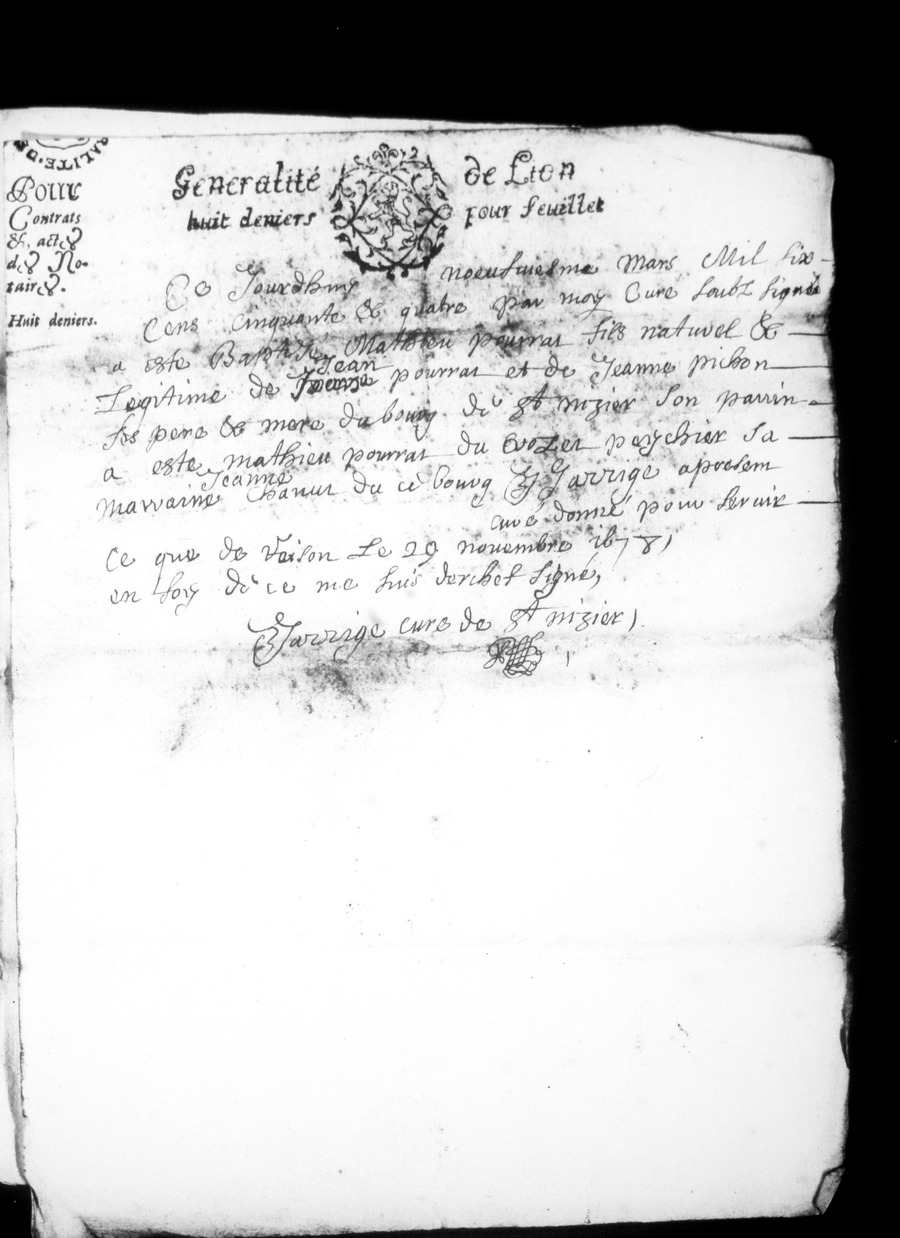 ALITE·D
Pour
Contrats
& actes
des No-
taires.
Huit deniers.
Generalité de Lion
huit deniers pour feuillet
Ce Jourdhuy noeufviesme Mars Mil six
Cens cinquante & quatre par moy Curé soubz signé
a esté Baptizé Mathieu pourrat fils naturel &
Jean
Legitime de pourrat et de Jeanne pichon
ses pere & mere du bourg de st nizier son parrin
a este mathieu pourrat du sa
Jeanne
marraine Chanut du ce bourg Jarrige apresent
curé donné pour servir
Ce que de raison Le 29 novembre 1678,
en foy de ce me suis derchef signé,
Jarrige curé de st nizier,